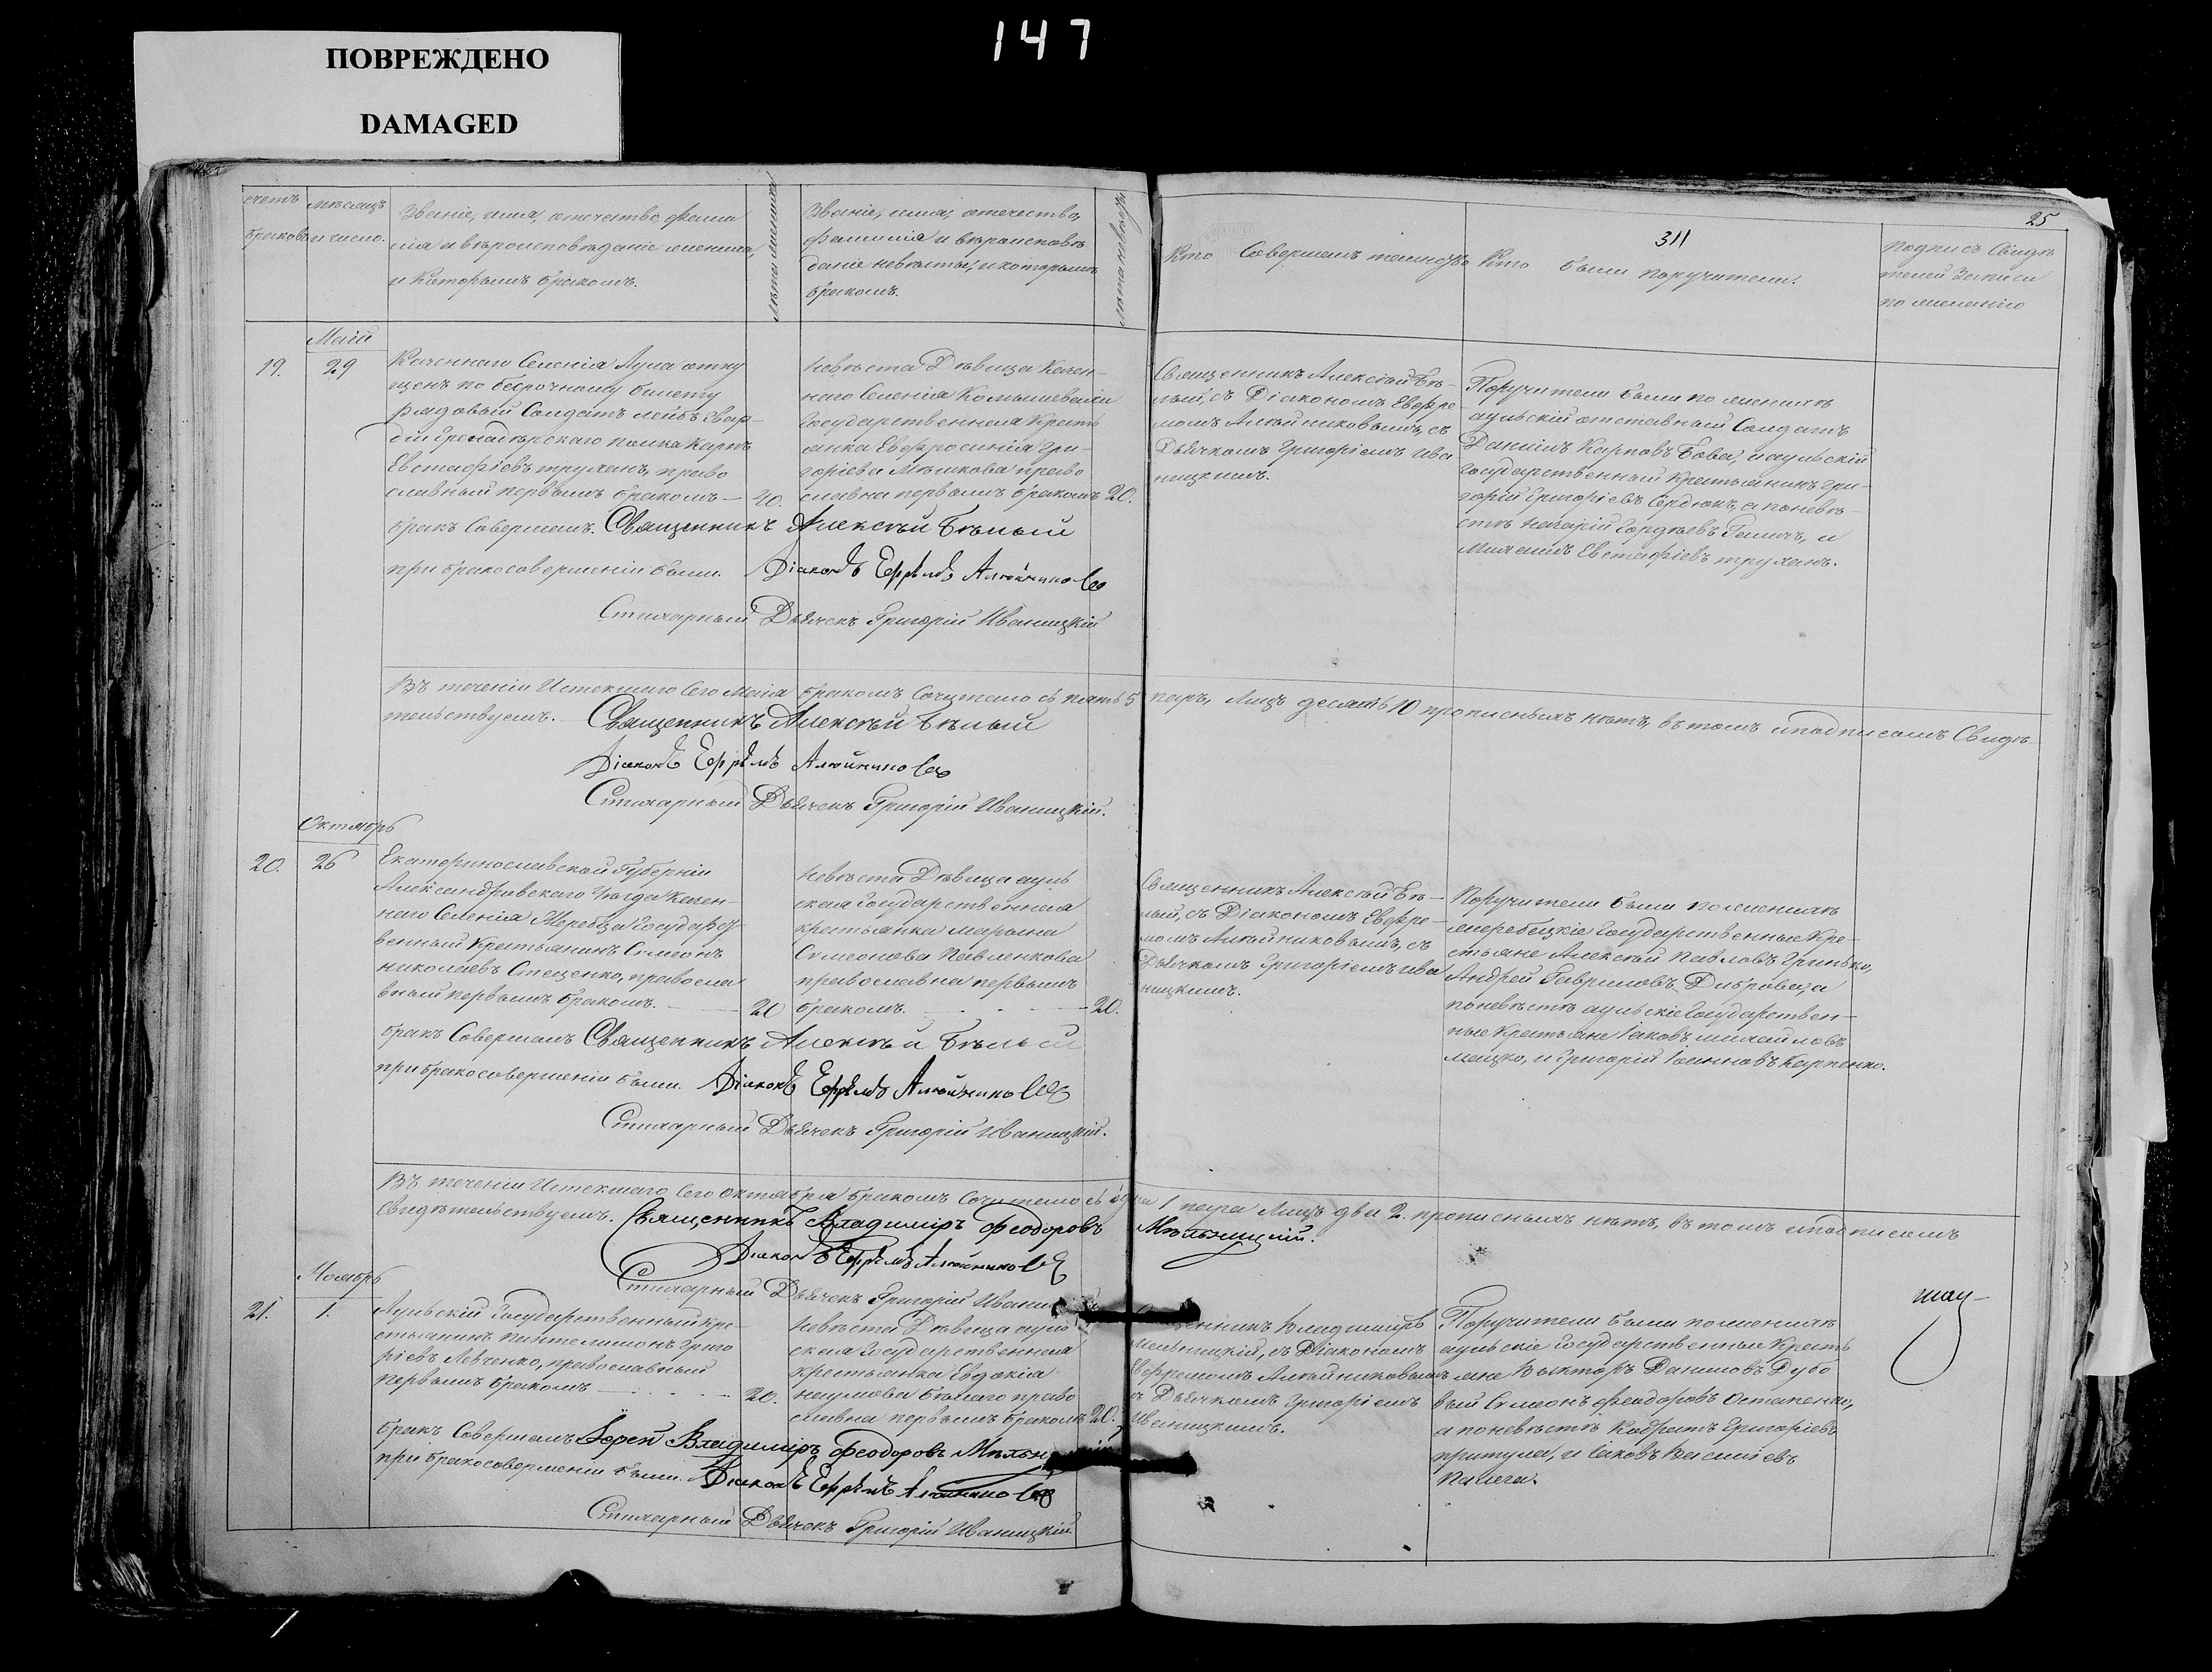 ПОВРЕЖДЕНО
DAMAGED
147
25
311
счетъ браковъ
мѣсяцъ и число.
Званіе, имя, отечество фами
лія и вѣроисповѣданіе жениха,
и Которымъ бракомъ.
Лѣта жениха
Званіе, имя, отечество,
фамилія и вѣроисповѣ
даніе невѣсты, и которымъ
бракомъ.
Лѣта невѣсты
Кто Совершалъ таинство
Кто были поручители.
Подписъ Свидѣ
телей Записи
по желанію
Маій
19.
29
Казеннаго Селенія Аула отпу
щенъ по безсрочному билету
рядовый Солдатъ лейбъ Гвар-
діи Гренадѣрскаго полка Карпъ
Евстафіевъ труханъ, право
славный первымъ бракомъ —
20.
невѣста Дѣвица Казен-
наго Селенія Комышевахи
Государственная Крестъ
янка Евфросинія Гри-
горіева Мѣшкова право
славна первымъ бракомъ
20.
Священникъ Алексѣй Бѣ-
лый, съ Діакономъ Евфре
момъ Алѣйниковымъ, съ
Дьячкомъ Григоріемъ Ива
ницкимъ.
Поручители были по женихѣ
аульскій отставный Солдатъ
Даніилъ Карповъ Бова, и аульскій
Государственный Крестьянинъ Гри-
горій Григоріевъ Сердюкъ, а по невѣ-
стѣ Назарій Гордѣевъ Галичъ, и
Михаилъ Евстафіевъ труханъ.
бракъ Совершалъ. Священникъ Алексѣй Бѣлый
при бракосовершеніи были. Діаконъ Ефрѣмъ Алюйниковъ
Стихарный Дьячекъ Григорій Иваницкій
Въ теченіи Истекшаго Сего Маія бракомъ Сочетано съ пять 5 паръ, Лицъ десять 10 прописныхъ нѣтъ, въ томъ и подписомъ Свидѣ-
тельствуемъ. Священникъ Алексѣй Бѣлый
Діаконъ Ефрѣмъ Алюйниковъ
Стихарный Дьячекъ Григорій Иваницкій.
Октябрь
20.
26
Екатеринославской Губерніи
Александровскаго Уѣзда Казен-
наго Селенія Жеребца Государст
венный Крестьянинъ Симеонъ
николаевъ Стеценко, правосла
вный первымъ бракомъ.
20
невѣста Дѣвица ауль
ская Государственная
крестьянка марьяна
Симеонова Павленкова
православна первымъ
бракомъ.
20.
Священникъ Алексѣй Бѣ-
лый, съ Діакономъ Евфре-
момъ Алѣйниковымъ, съ
Дьячкомъ Григоріемъ Ива
ницкимъ.
Поручители были по женихѣ
жеребецкіе Государственные Кре-
стьяне Алексѣй Павловъ Гринько,
Андрей Гавриловъ Диброва, а
по невѣстѣ аульскіе Государствен-
ные Крестьяне Іаковъ михайловъ
мацко, и Григорій Іоанновъ Карпенко.
бракъ Совершалъ Священникъ Алексѣй Бѣлый
при бракосовершеніи были. Діаконъ Ефрѣмъ Алюйниковъ
Стихарный Дьячекъ Григорій Иваницкій.
Въ теченіи Истекшаго Сего октября бракомъ Сочетано съ одна 1 пара Лицъ два 2. прописныхъ нѣтъ, въ томъ и подписомъ
Свидѣтельствуемъ. Священникъ Владиміръ Феодоровъ Мѣльницкій.
Діаконъ Ефрѣмъ Алюйниковъ
Стихарный Дьячекъ Григорій Иваниц
Ноябрь
21.
1.
Аульскій Государственный Кре-
стьянинъ Пантелимонъ Григо
ріевъ Левченко, православный
первымъ бракомъ
20.
невѣста Дѣвица ауль
ская Государственная
крестьянка Евдокія
наумова бѣлаго право
славна первымъ бракомъ
20.
енникъ Владиміръ
Мельницкій, съ Діакономъ
Евфремомъ Алѣйниковымъ
съ Дьячкомъ Григоріемъ
Иваницкимъ.
Поручители были по женихѣ
аульскіе Государственные Кресть
яне Выкторъ Даниловъ Дубо
вый Симеонъ феодоровъ Остапенко,
а по невѣстѣ Кодратъ Григоріевъ
притула, и Іаковъ Василіевъ
Палега.
бракъ Совершалъ Іерей Владиміръ Феодоровъ Мѣльн
при бракосовершеніи были. Діаконъ Ефрѣмъ Алюйниковъ
Стихарный Дьячекъ Григорій Иваницкій